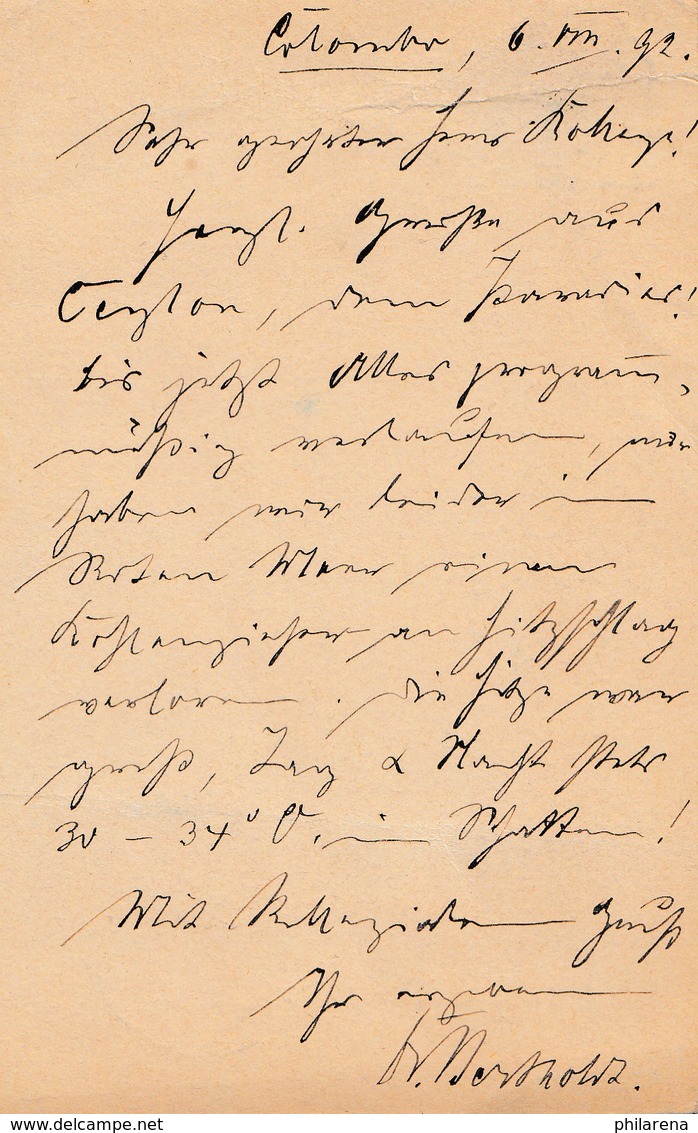 Colombo, 6. VIII. 92.
Sehr geehrter Herr Kollege!
Herzl. Grüße aus
Ceylon, dem Paradies!
bis jetzt Alles program̅,
mäßig verlaufen, nur
haben wir leider im
Roten Meer einen
Kohlenzieher an Hitzschlag
verloren. Die Hitze war
groß, Tag & Nacht stets
30 – 34° C. im Schatten!
Mit Kollegialem Gruß
Ihr ergebener
Dr. Berthold.
www.delcampe.net
philarena